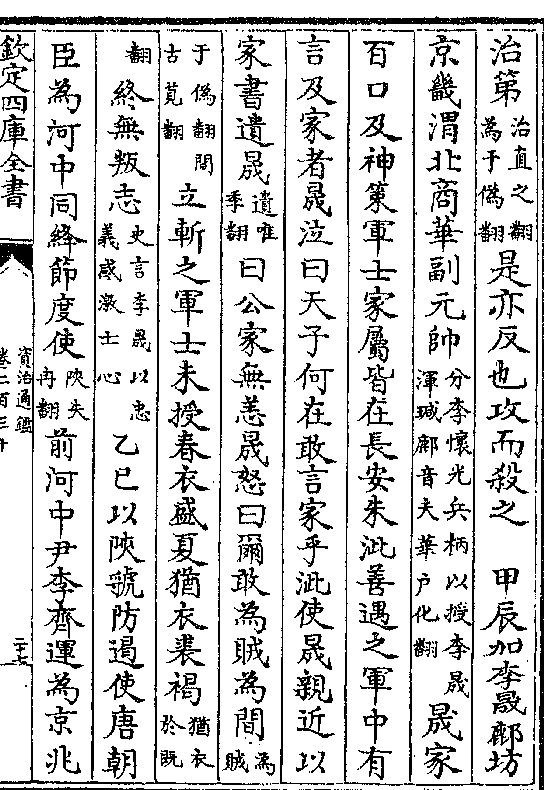 治第治直之翻為于偽翻是亦反也攻而殺之　甲辰加李晟鄜坊
京畿渭北商華副元帥分李懷光兵柄以授李晟渾瑊鄜音夫華户化翻晟家
百口及神策軍士家屬皆在長安朱泚善遇之軍中有
言及家者晟泣曰天子何在敢言家乎泚使晟親近以
家書遺晟遺唯季翻曰公家無恙晟怒曰爾敢為賊為間為賊
于偽翻間古莧翻立斬之軍士未授春衣盛夏猶衣裘褐猶衣於既
翻終無叛志史言李晟以忠義感激士心乙巳以陜虢防遏使唐朝
臣為河中同絳節度使陜失冉翻前河中尹李齊運為京兆
欽定四庫全書
資治通鑑
卷二百三十
二十七